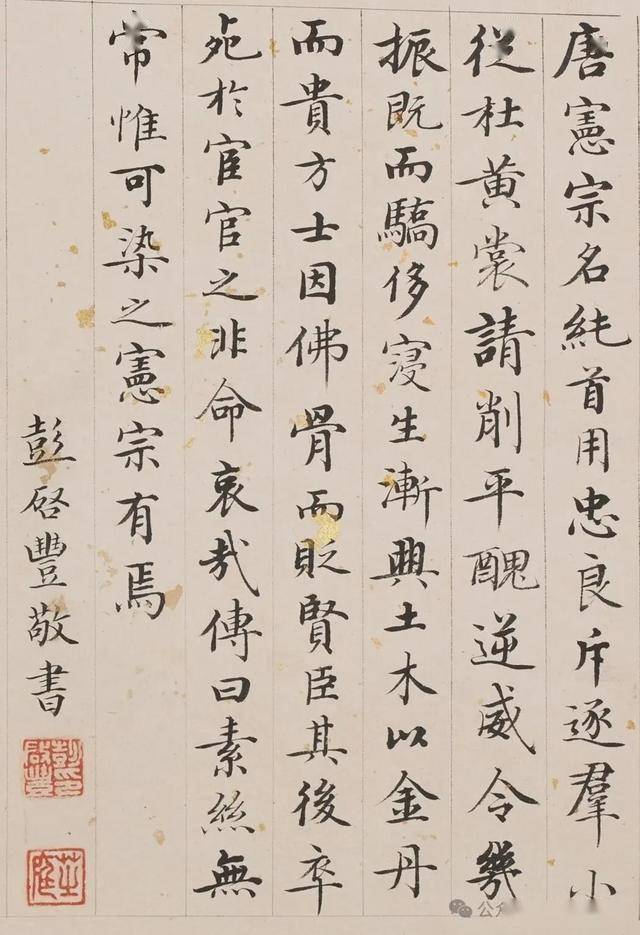 唐憲宗名純首用忠良斥逐羣小
從杜黃裳請削平醜逆威令幾
振既而驕侈寖生漸興土木以金丹
而貴方士因佛骨而貶賢臣其後卒
死於宦官之非命哀哉傳曰素絲無
常惟可染之憲宗有焉
彭啓豐敬書
彭啟豐印
芝庭
公众